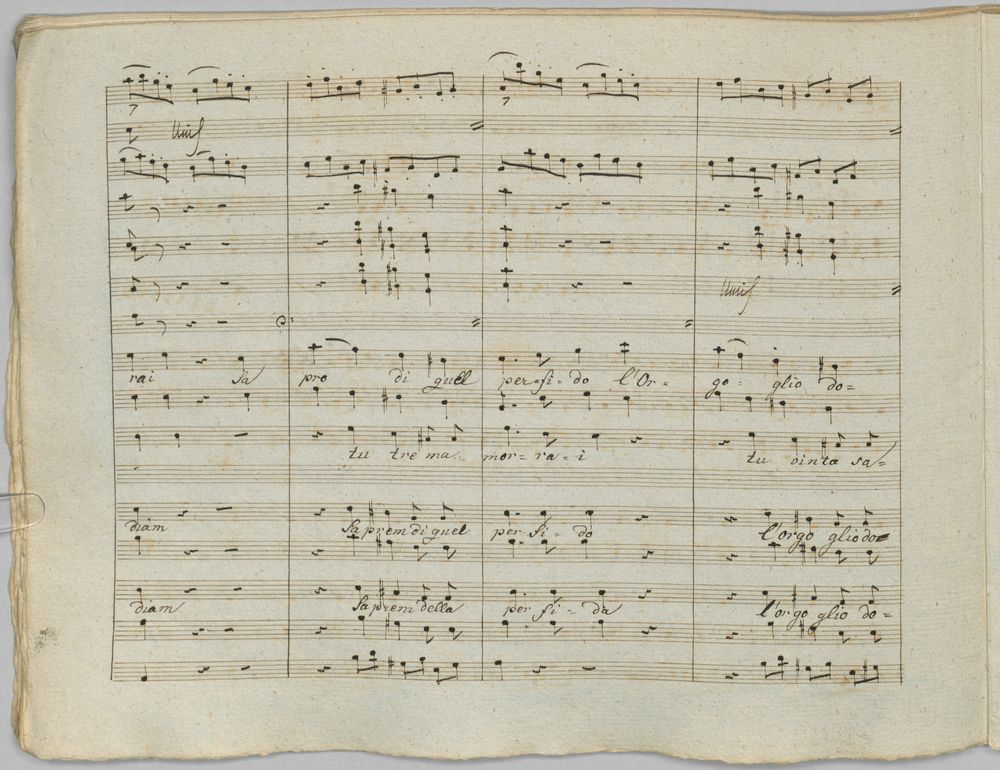 Unis
Unis
rai Sa pro di quel per=fi=do l'Or= go= glio do=
tu trema mor=ra=i tu vinta sa=
diam Saprem di quel per=fi=do l'orgo glio do=
diam Saprem della per fi=da l'orgo glio do=